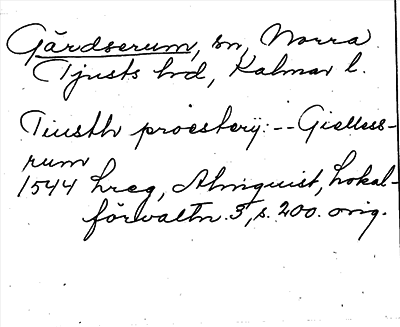 Gärdserum, sn, Norra
Tjusts hd, Kalmar l.
Tiusth proesterij: -- Gielless-
rum
1544 hreg, Almquist, Lokal-
förvaltn. 3, s. 200. orig.